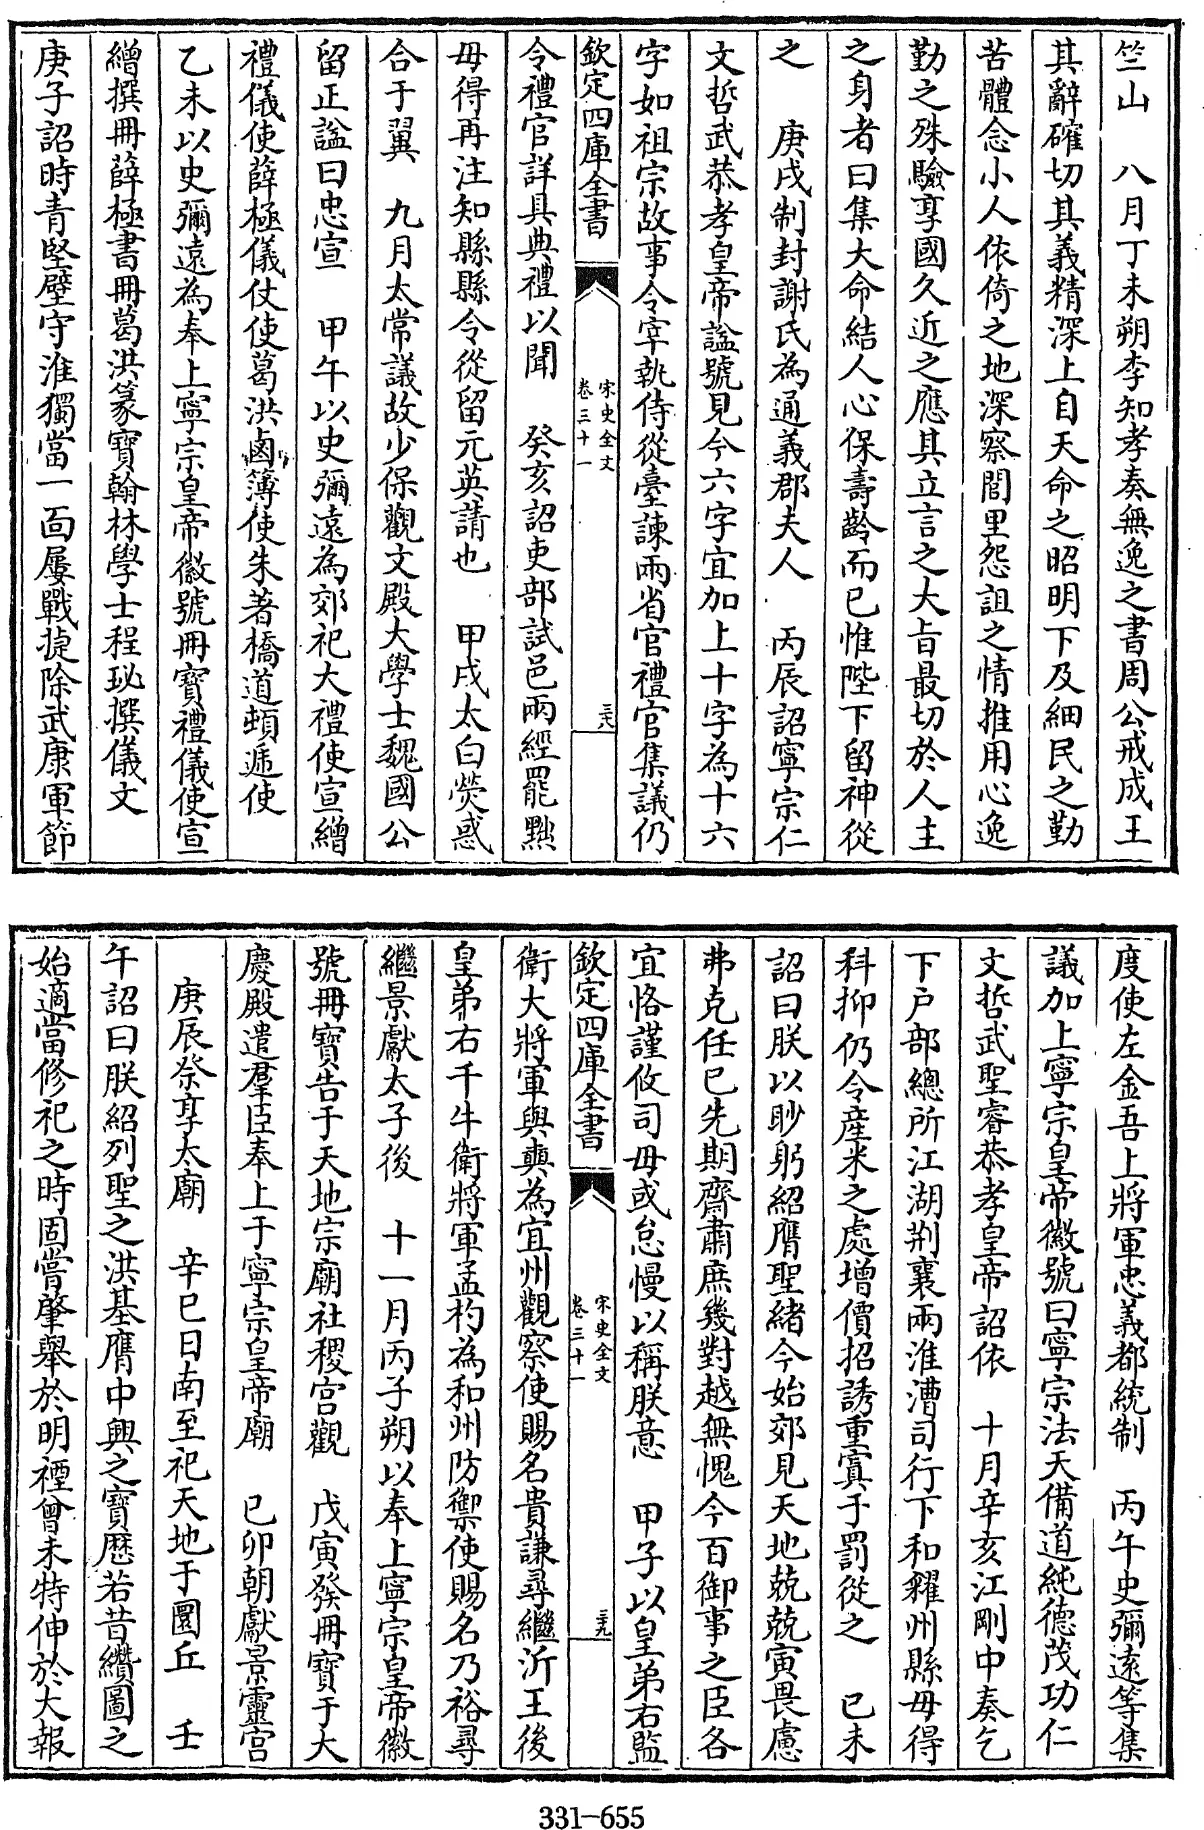 竺山　八月丁未朔李知孝奏無逸之書周公戒成王
其辭確切其義精深上自天命之昭明下及細民之勤
苦體念小人依倚之地深察閭里怨詛之情推用心逸
勤之殊驗享國久近之應其立言之大旨最切於人主
之身者曰集大命結人心保壽齡而已惟陛下留神從
之　庚戌制封謝氏為通義郡夫人　丙辰詔寧宗仁
文哲武恭孝皇帝諡號見今六字宜加上十字為十六
字如祖宗故事令宰執侍從臺諫兩省官禮官集議仍
欽定四庫全書
宋史全文
卷三十一
三六
令禮官詳具典禮以聞　癸亥詔吏部試邑兩經罷黜
毋得再注知縣縣令從留元英請也　甲戌太白熒惑
合于翼　九月太常議故少保觀文殿大學士魏國公
留正諡曰忠宣　甲午以史彌遠為郊祀大禮使宣繒
禮儀使薛極儀仗使葛洪鹵簿使朱著橋道頓遞使
乙未以史彌遠為奉上寧宗皇帝徽號冊寶禮儀使宣
繒撰冊薛極書冊葛洪篆寶翰林學士程珌撰儀文
庚子詔時青堅壁守淮獨當一面屢戰捷除武康軍節
度使左金吾上將軍忠義都統制　丙午史彌遠等集
議加上寧宗皇帝徽號曰寧宗法天備道純德茂功仁
文哲武聖睿恭孝皇帝詔依　十月辛亥江剛中奏乞
下戶部總所江湖荆襄兩淮漕司行下和糴州縣毋得
科抑仍令產米之處增價招誘重寘于罰從之　已未
詔曰朕以眇躬紹膺聖緒今始郊見天地兢兢寅畏慮
弗克任已先期齋肅庶幾對越無愧今百御事之臣各
宜恪謹攸司毋或怠慢以稱朕意　甲子以皇弟右監
欽定四庫全書
宋史全文
卷三十一
三九
衛大將軍與奭為宜州觀察使賜名貴謙尋繼沂王後
皇弟右千牛衛將軍孟杓為和州防禦使賜名乃裕尋
繼景獻太子後　十一月丙子朔以奉上寧宗皇帝徽
號冊寶告于天地宗廟社稷宮觀　戊寅發冊寶于大
慶殿遣羣臣奉上于寧宗皇帝廟　已卯朝獻景靈宮
庚辰祭享太廟　辛巳日南至祀天地于圜丘　壬
午詔曰朕紹列聖之洪基膺中興之寶歷若昔纘圖之
始適當修祀之時固嘗肇舉於明禋曾未特伸於大報
331-655